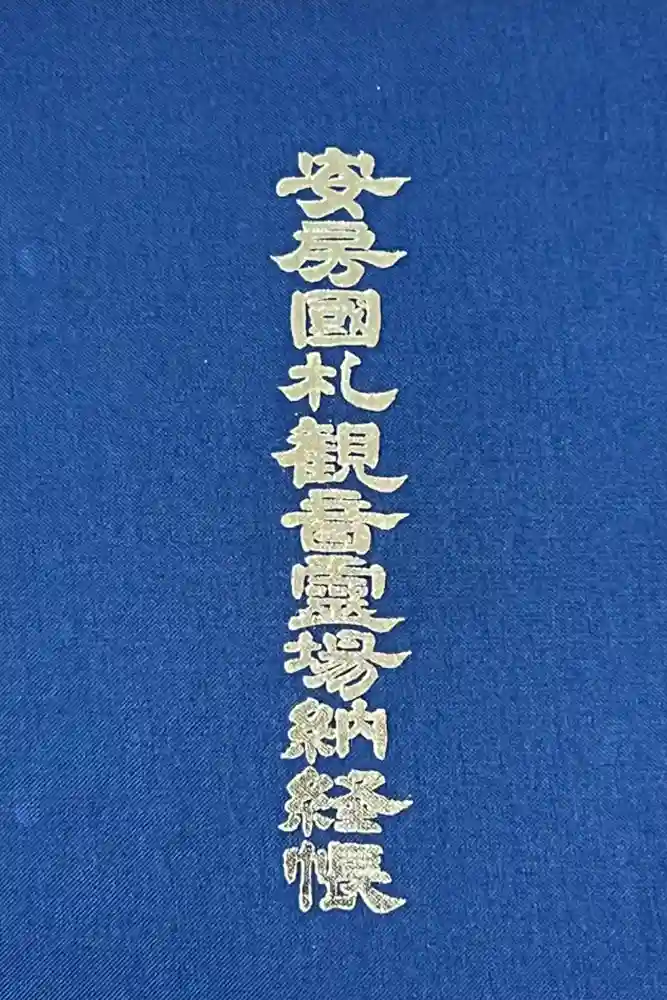 安房國札観音霊場納経帳